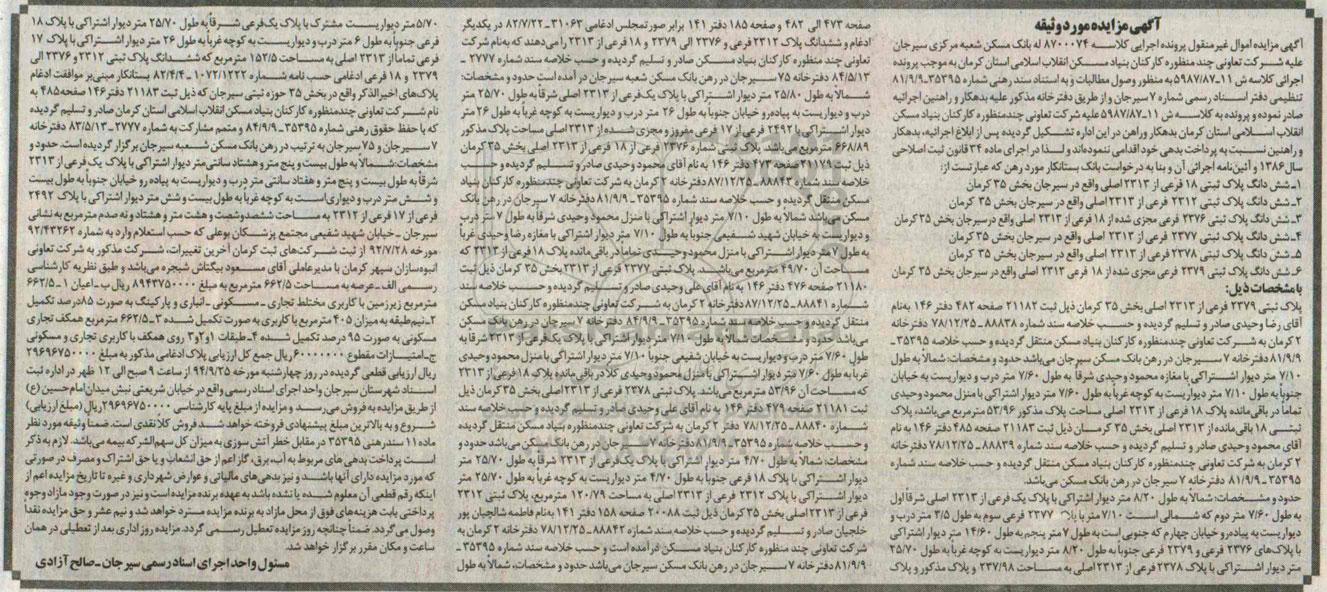 آگهی مزایده مورد وثیقه
آگهی مزایده اموال غیرمنقول پرونده اجرایی کلاسه ۸۷۰۰۰۷۴ له بانک مسکن شعبه مرکزی سیرجان
علیه شرکت تعاونی چند منظوره کارکنان بنیاد مسکن انقلاب اسلامی استان کرمان به موجب پرونده
اجرائی کلاسه ش ۱۱ـ۵۹۸۷/۸۷ به منظور وصول مطالبات و به استناد سند رهنی شماره ۳۵۳۹۵ـ۸۱/۹/۹
تنظیمی دفتر اسناد رسمی شماره ۷ سیرجان و از طریق دفترخانه مذکور علیه بدهکار و راهنین اجرائیه
صادر نموده و پرونده به کلاسه ش ۱۱ـ۵۹۸۷/۸۷ علیه شرکت تعاونی چندمنظوره کارکنان بنیاد مسکن
انقلاب اسلامی استان کرمان بدهکار و راهن در این اداره تشکیل گردیده پس از ابلاغ اجرائیه، بدهکار
و راهنین نسبت به پرداخت بدهی خود اقدامی ننموده‌اند و لذا در اجرای ماده ۳۴ قانون ثبت اصلاحی
سال ۱۳۸۶ و آئین‌نامه اجرائی آن و بنا به درخواست بانک بستانکار مورد رهن که عبارتست از:
۱ـ شش دانگ پلاک ثبتی ۱۸ فرعی از ۲۳۱۳ اصلی واقع در سیرجان بخش ۳۵ کرمان
۲ـ شش دانگ پلاک ثبتی ۲۳۱۲ فرعی از ۲۳۱۳ اصلی واقع در سیرجان بخش ۳۵ کرمان
۳ـ شش دانگ پلاک ثبتی ۲۳۷۶ فرعی مجزی شده از ۱۸ فرعی از ۲۳۱۳ اصلی واقع در سیرجان بخش ۳۵ کرمان
۴ـ شش دانگ پلاک ثبتی ۲۳۷۷ فرعی از ۲۳۱۳ اصلی واقع در سیرجان بخش ۳۵ کرمان
۵ـ شش دانگ پلاک ثبتی ۲۳۷۸ فرعی از ۲۳۱۳ اصلی واقع در سیرجان بخش ۳۵ کرمان
۶ـ شش دانگ پلاک ثبتی ۲۳۷۹ فرعی مجزی شده از ۱۸ فرعی ۲۳۱۳ اصلی واقع در سیرجان بخش ۳۵ کرمان
با مشخصات ذیل:
پلاک ثبتی ۲۳۷۹ فرعی از ۲۳۱۳ اصلی بخش ۳۵ کرمان ذیل ثبت ۲۱۱۸۲ صفحه ۴۸۲ دفتر ۱۴۶ به‌نام
آقای رضا وحیدی صادر و تسلیم گردیده و حسب خلاصه سند شماره ۸۸۸۳۸ـ ۷۸/۱۲/۲۵ دفترخانه
۲ کرمان به شرکت تعاونی چندمنظوره کارکنان بنیاد مسکن منتقل گردیده و حسب خلاصه ۳۵۳۹۵ـ
۸۱/۹/۹ دفترخانه ۷ سیرجان در رهن بانک مسکن سیرجان می‌باشد حدود و مشخصات: شمالاً به طول
۷/۱۰ متر دیوار اشتراکی با مغازه محمود وحیدی شرقاً به طول ۷/۶۰ متر درب و دیواریست به خیابان
جنوباً به طول ۷/۱۰ متر دیواریست به کوچه غرباً به طول ۷/۶۰ متر دیوار اشتراکی با محمود وحیدی
تماماً در باقی‌مانده پلاک ۱۸ فرعی از ۲۳۱۳ اصلی مساحت پلاک مذکور ۵۳/۹۶ مترمربع می‌باشد، پلاک
ثبتی ۱۸ باقی‌مانده از ۲۳۱۳ اصلی بخش ۳۵ کرمان ذیل ثبت ۲۱۱۸۳ صفحه ۴۸۵ دفتر ۱۴۶ به نام
آقای محمود وحیدی صادر و تسلیم گردیده و حسب خلاصه سند شماره ۸۸۸۳۹ـ ۷۸/۱۲/۲۵ دفترخانه
۲ کرمان به شرکت تعاونی چندمنظوره کارکنان بنیاد مسکن منتقل گردیده و حسب خلاصه سند شماره
۳۵۳۹۵ـ ۸۱/۹/۹ دفترخانه ۷ سیرجان در رهن بانک مسکن می‌باشد.
حدود و مشخصات: شمالاً به طول ۸/۲۰ متر دیوار اشتراکی با پلاک یک فرعی از ۲۳۱۳ اصلی شرقاً اول
به طول ۷/۶۰ متر دوم که شمالی است ۷/۱۰ متر با پلاک ۲۳۷۷ فرعی سوم به طول ۳/۵ متر درب و
دیواریست به پیاده‌رو خیابان چهارم که جنوبی است به طول ۷ متر پنجم به طول ۱۴/۶۰ متر دیوار اشتراکی
با پلاک‌های ۲۳۷۶ فرعی و ۲۳۷۹ فرعی جنوباً به طول ۸/۲۰ متر دیواریست به کوچه غرباً به طول ۲۵/۷۰
متر دیوار اشتراکی با پلاک ۲۳۷۸ فرعی از ۲۳۱۳ اصلی به مساحت ۲۳۷/۹۸ و پلاک مذکور و پلاک
صفحه ۴۷۳ الی ۴۸۲ و صفحه ۱۸۵ دفتر ۱۴۱ برابر صورتمجلس ادغامی ۳۱۰۶۳ـ ۸۲/۷/۲۲ در یکدیگر
ادغام و ششدانگ پلاک ۲۳۱۲ فرعی و ۲۳۷۶ الی ۲۳۷۹ و ۱۸ فرعی از ۲۳۱۳ را می‌دهند که به‌نام شرکت
تعاونی چند منظوره کارکنان بنیاد مسکن صادر و تسلیم گردیده و حسب خلاصه سند شماره ۲۷۷۷ـ
۸۴/۵/۱۳ دفترخانه ۷۵ سیرجان در رهن بانک مسکن شعبه سیرجان درآمده است حدود و مشخصات:
شمالاً به طول ۲۵/۸۰ متر دیوار اشتراکی با پلاک یک‌فرعی از ۲۳۱۳ اصلی شرقاً به طول ۲۵/۷۰ متر
درب و دیواریست به پیاده‌رو خیابان جنوباً به طول ۲۶ متر درب و دیواریست به کوچه غرباً به طول ۲۶ متر
دیوار اشتراکی با ۲۴۹۲ فرعی از ۱۷ فرعی مفروز و مجزی شده از ۲۳۱۳ اصلی مساحت پلاک مذکور
۶۶۸/۸۹ مترمربع می‌باشد. پلاک ثبتی شماره ۲۳۷۶ فرعی از ۱۸ فرعی از ۲۳۱۳ اصلی بخش ۳۵ کرمان
ذیل ثبت ۲۱۱۷۹ صفحه ۴۷۳ دفتر ۱۴۶ به نام آقای محمود وحیدی صادر و تسلیم گردیده و حسب
خلاصه سند شماره ۸۸۸۴۳ـ ۸۷/۱۲/۲۵ دفترخانه ۲ کرمان به شرکت تعاونی چندمنظوره کارکنان بنیاد
مسکن منتقل گردیده و حسب خلاصه سند شماره ۳۵۳۹۵ـ ۸۱/۹/۹ دفترخانه ۷ سیرجان در رهن بانک
مسکن می‌باشد شمالاً به طول ۷/۱۰ متر دیوار اشتراکی با منزل محمود وحیدی شرقاً به طول ۷ متر درب
و دیواریست به خیابان شهید شفیعی جنوباً به طول ۷/۱۰ متر دیوار اشتراکی با مغازه رضا وحیدی غرباً
به طول ۷ متر دیوار اشتراکی با منزل محمود وحیدی تماماً در باقی‌مانده پلاک ۱۸ فرعی از ۲۳۱۳ که
مساحت آن ۴۹/۷۰ مترمربع می‌باشد. پلاک ثبتی ۲۳۷۷ فرعی از ۲۳۱۳ بخش ۳۵ کرمان ذیل ثبت
۲۱۱۸۰ صفحه ۴۷۶ دفتر ۱۴۶ به نام آقای علی وحیدی صادر و تسلیم گردیده و حسب خلاصه سند
شماره ۸۸۸۴۱ـ ۸۷/۱۲/۲۵ دفترخانه ۲ کرمان به شرکت تعاونی چندمنظوره کارکنان بنیاد مسکن
منتقل گردیده و حسب خلاصه سند شماره ۳۵۳۹۵ـ ۸۴/۹/۹ دفترخانه ۷ سیرجان در رهن بانک مسکن
می‌باشد حدود و مشخصات شمالاً به طول ۷/۱۰ متر دیوار اشتراکی با پلاک یک‌فرعی از ۲۳۱۳ شرقاً به
طول ۷/۶۰ متر درب و دیواریست به خیابان شفیعی جنوباً ۷/۱۰ متر دیوار اشتراکی با منزل محمود وحیدی
غرباً به طول ۷/۶۰ متر دیوار اشتراکی با منزل محمود وحیدی کلاً در باقی‌مانده پلاک ۱۸ فرعی از ۲۳۱۳
که مساحت آن ۵۳/۹۶ مترمربع می‌باشد. پلاک ثبتی ۲۳۷۸ فرعی از ۲۳۱۳ اصلی بخش ۳۵ کرمان ذیل
ثبت ۲۱۱۸۱ صفحه ۴۷۹ دفتر ۱۴۶ به نام آقای علی وحیدی صادر و تسلیم گردیده و حسب خلاصه سند
شماره ۸۸۸۴۰ـ ۷۸/۱۲/۲۵ دفتر ۲ کرمان به شرکت تعاونی چندمنظوره بنیاد مسکن منتقل گردیده
و حسب خلاصه سند شماره ۳۵۳۹۵ـ ۸۱/۹/۹ دفترخانه ۷ سیرجان در رهن بانک مسکن می‌باشد حدود و
مشخصات: شمالاً به طول ۴/۷۰ متر دیوار اشتراکی با پلاک یک‌فرعی از ۲۳۱۳ شرقاً به طول ۲۵/۷۰ متر
دیوار اشتراکی با پلاک ۱۸ فرعی جنوباً به طول ۴/۷۰ متر دیواریست به کوچه غرباً به طول ۲۵/۷۰ متر
دیوار اشتراکی با پلاک ۲۳۱۲ فرعی از ۲۳۱۳ اصلی به مساحت ۱۲۰/۷۹ مترمربع، پلاک ثبتی ۲۳۱۲
فرعی از ۲۳۱۳ اصلی بخش ۳۵ کرمان ذیل ثبت ۲۰۰۸۸ صفحه ۱۵۸ دفتر ۱۴۱ به نام فاطمه شالچیان پور
خلجیان صادر و تسلیم گردیده و حسب خلاصه سند شماره ۸۸۸۴۲ـ ۷۸/۱۲/۲۵ دفترخانه ۲ کرمان به
شرکت تعاونی چند منظوره کارکنان بنیاد مسکن درآمده است و حسب خلاصه سند شماره ۳۵۳۹۵ـ
۸۱/۹/۹ دفترخانه ۷ سیرجان در رهن بانک مسکن سیرجان می‌باشد حدود و مشخصات: شمالاً به طول
۵/۷۰ متر دیواریست مشترک با پلاک یک‌فرعی شرقاً به طول ۲۵/۷۰ متر دیوار اشتراکی با پلاک ۱۸
فرعی جنوباً به طول ۶ متر درب و دیواریست به کوچه غرباً به طول ۲۶ متر دیوار اشتراکی با پلاک ۱۷
فرعی تماماً از ۲۳۱۳ اصلی به مساحت ۱۵۲/۵ مترمربع که ششدانگ پلاک ثبتی ۲۳۱۲ و ۲۳۷۶ الی
۲۳۷۹ و ۱۸ فرعی ادغامی حسب نامه شماره ۱۰۷۲/۱۲۲۲ـ ۸۲/۴/۴ بستانکار مبنی بر موافقت ادغام
پلاک‌های اخیرالذکر واقع در بخش ۳۵ حوزه ثبتی سیرجان که ذیل ثبت ۲۱۱۸۳ دفتر ۱۴۶ صفحه ۴۸۵ به
نام شرکت تعاونی چندمنظوره کارکنان بنیاد مسکن انقلاب اسلامی استان کرمان صادر و تسلیم گردیده
که با حفظ حقوق رهنی شماره ۳۵۳۹۵ـ ۸۴/۹/۹ و متمم مشارکت به شماره ۲۷۷۷ـ ۸۳/۵/۱۳ دفترخانه
۷ سیرجان و ۷۵ سیرجان به ترتیب در رهن بانک مسکن شعبه سیرجان برگزار گردیده است. حدود و
مشخصات: شمالاً به طول بیست و پنج متر و هشتاد سانتی‌متر دیوار اشتراکی با پلاک یک فرعی از ۲۳۱۳
شرقاً به طول بیست و پنج متر و هفتاد سانتی متر درب و دیواریست به پیاده رو خیابان جنوباً به طول بیست
و شش متر درب و دیواری است به کوچه غرباً به طول بیست و شش متر دیوار اشتراکی با پلاک ۲۴۹۲
فرعی از ۱۷ فرعی از ۲۳۱۲ به مساحت ششصد و شصت و هشت متر و هشتاد و نه صدم مترمربع به نشانی
سیرجان ـ خیابان شهید شفیعی مجتمع پزشکان بوعلی که حسب استعلام وارد به شماره ۹۲/۴۳۲۶۲
مورخه ۹۲/۷/۲۸ از ثبت شرکت‌های ثبت کرمان آخرین تغییرات، شرکت مذکور به شرکت تعاونی
انبوه‌سازان سپهر کرمان با مدیرعاملی آقای مسعود بیگتاش شبجره می‌باشد و طبق نظریه کارشناسی
رسمی الف ـ عرصه به مساحت ۶۶۲/۵ مترمربع به مبلغ ۸۹۴۳۷۵۰۰۰۰ ریال ب ـ اعیان ۱ـ ۶۶۲/۵
مترمربع زیرزمین با کاربری مختلط تجاری ـ مسکونی ـ انباری و پارکینگ به صورت ۸۵درصد تکمیل
۲ـ نیم‌طبقه به میزان ۴۰۵ مترمربع با کاربری به صورت تکمیل شده ۳ـ ۶۶۲/۵ مترمربع همکف تجاری
مسکونی به صورت ۹۵ درصد تکمیل شده ۴ـ طبقات ۱و۲و۳ روی همکف با کاربری تجاری و مسکونی
ج ـ امتیازات مقطوع ۶۰۰۰۰۰۰۰ ریال جمع کل ارزیابی پلاک ادغامی مذکور به مبلغ ۲۹۶۹۶۷۵۰۰۰۰
ریال ارزیابی قطعی گردیده در روز چهارشنبه مورخه ۹۴/۹/۲۵ از ساعت ۹ صبح الی ۱۲ ظهر در اداره ثبت
اسناد شهرستان سیرجان واحد اجرای اسناد رسمی واقع در خیابان شریعتی نبش میدان امام حسین (ع)
از طریق مزایده به فروش می‌رسد و مزایده از مبلغ پایه کارشناسی ۲۹۶۹۶۷۵۰۰۰۰ ریال (مبلغ ارزیابی)
شروع و به بالاترین مبلغ پیشنهادی فروخته خواهد شد فروش کلاً نقدی است. ضمناً وثیقه مورد نظر
ماده ۱۱ سند رهنی ۳۵۳۹۵ در مقابل خطر آتش سوزی به میزان کل سهم الشرکه بیمه می‌باشد. لازم به ذکر
است پرداخت بدهی های مربوط به آب، برق، گاز اعم از حق انشعاب و یا حق اشتراک و مصرف در صورتی
که مورد مزایده دارای آنها باشد و نیز بدهی‌های مالیاتی و عوارض شهرداری و غیره تا تاریخ مزایده اعم از
اینکه رقم قطعی آن معلوم شده یا نشده باشد به عهده برنده مزایده است و نیز در صورت وجود مازاد وجوه
پرداختی بابت هزینه‌های فوق از محل مازاد به برنده مزایده مسترد خواهد شد و نیم عشر و حق مزایده نقداً
وصول می‌گردد. ضمناً چنانچه روز مزایده تعطیل رسمی گردد. مزایده روز اداری بعد از تعطیلی در همان
ساعت و مکان مقرر برگزار خواهد شد.
مسئول واحد اجرای اسناد رسمی سیرجان ـ صالح آزادی